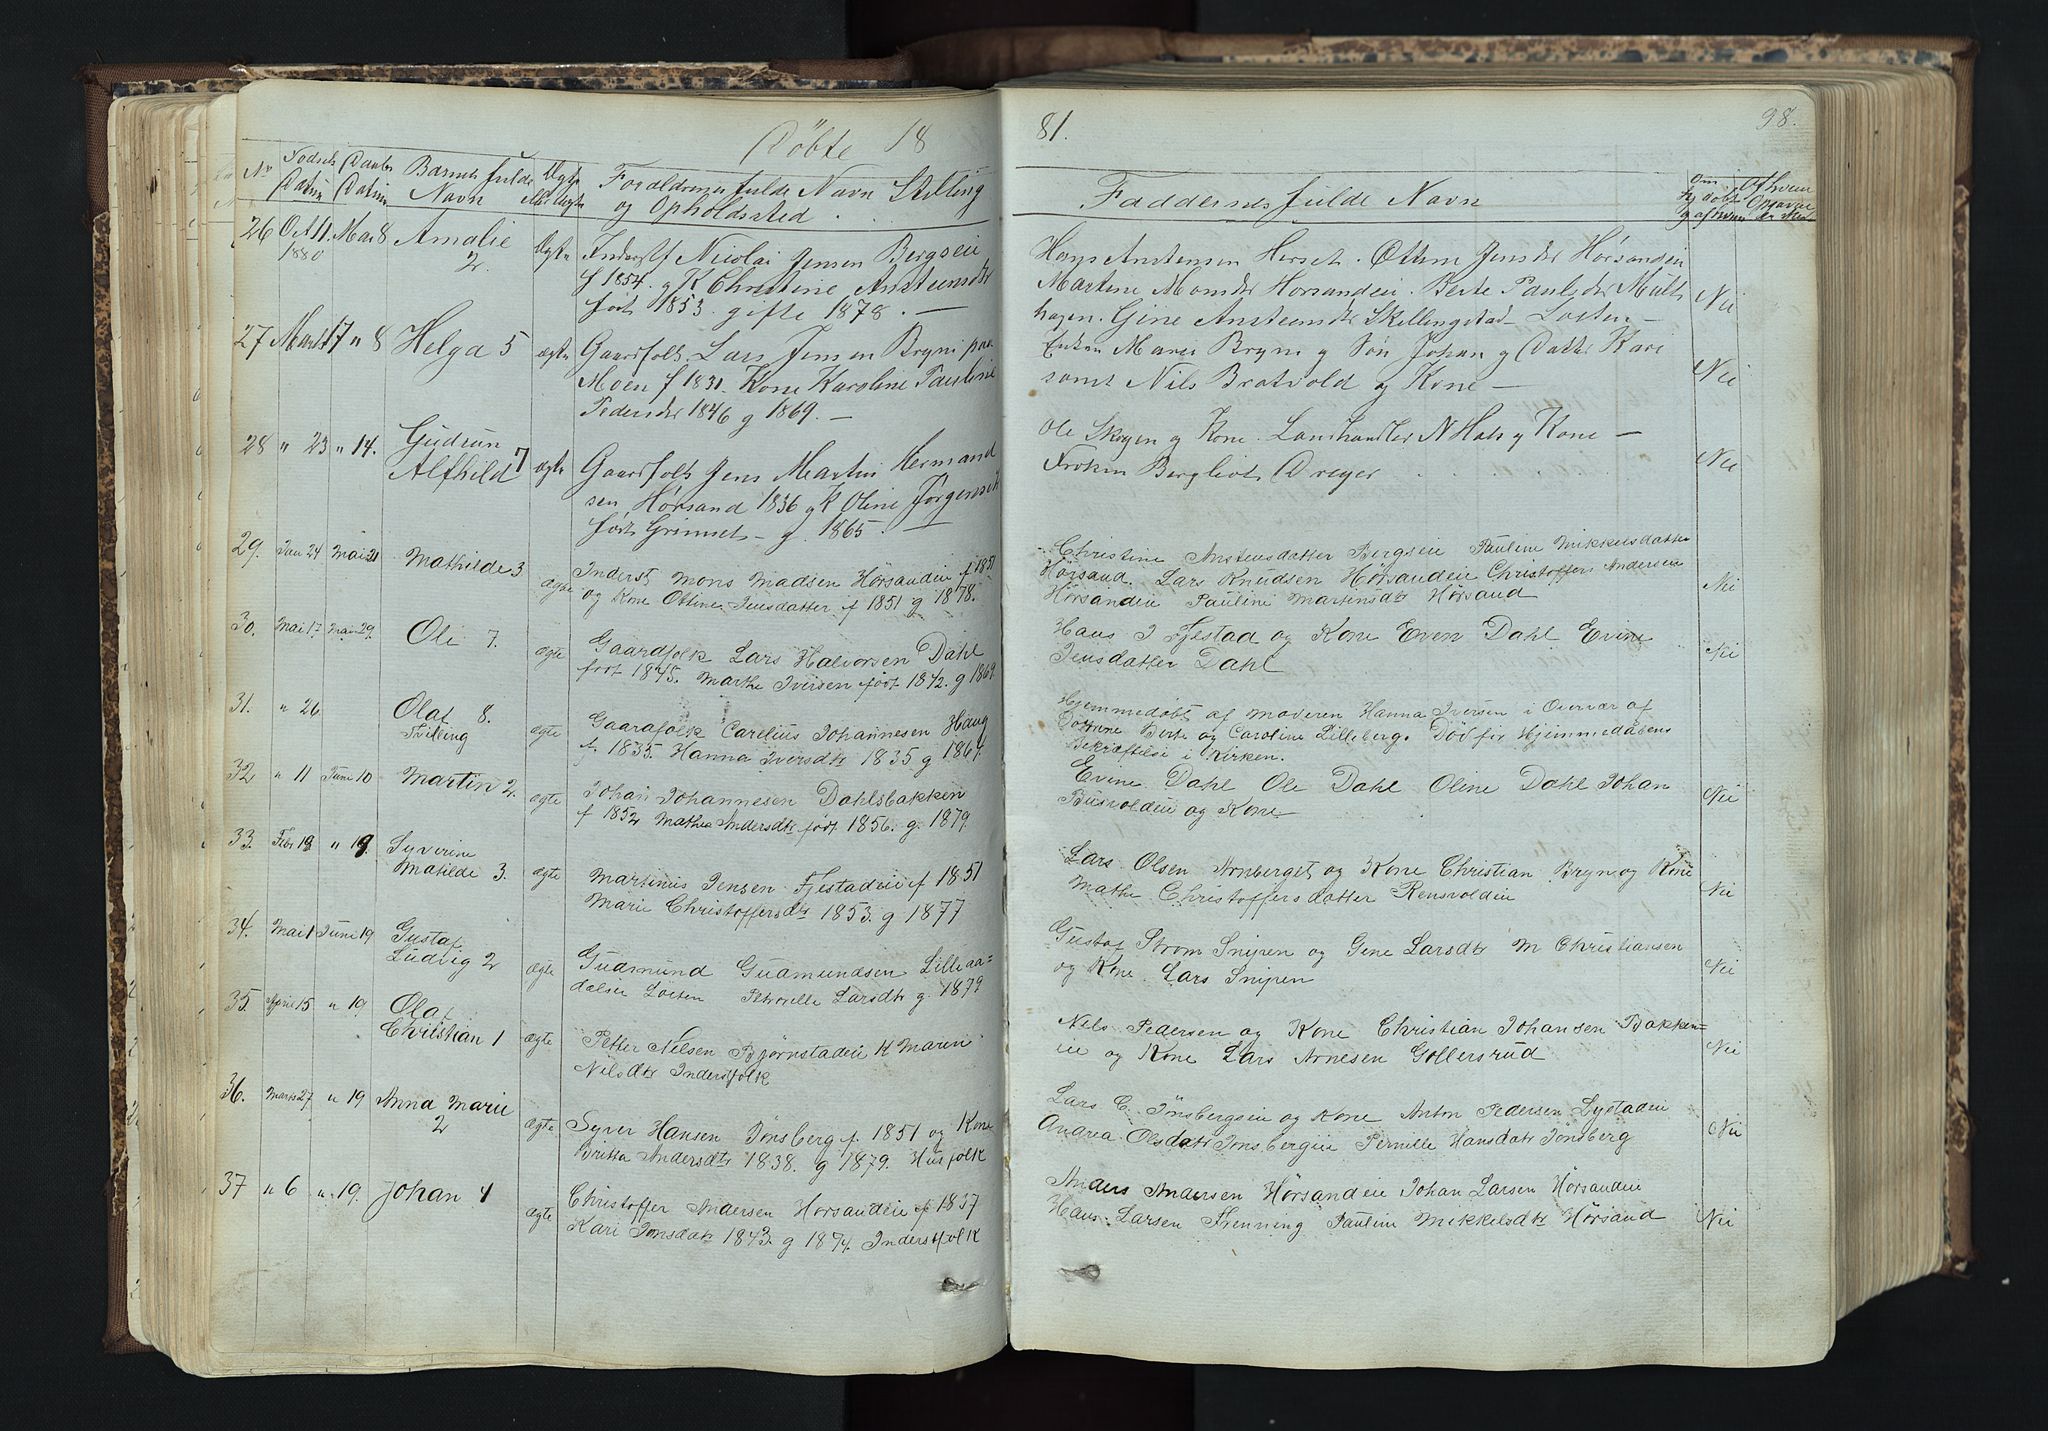 Døbte 18
81.
98.
No
Fødsels Datum
Daabs Datum
Barnets fulde Navn
Ægte
Forældrenes fulde Navn Stilling
og Opholdssted.
Faddernes fulde Navn
26 Oct 11. Mai 8 Amalie Ægte
1880 2.
Inderstf Nicolai Jensen Bergseie
f 1854. g K Christine Anstensdtr
født 1853 gifte 1878. —
Hans Anstensen Herset. Ottine Jensdtr Hørsandeie
Martine Monsdtr Hørsandeie. Berte Paulsdtr
Gine Anstensdtr Skellingstad Løiten — Nei
27 Marts 17 " 8 Helga 5 ægte
Gaardfolk Lars Jensen Bryni paa
Moen f 1831. Kone Karoline Pauline
Pedersdtr 1846 g 1869. —
Enken Marie Bryni g Søn Johan g Datter Kari
samt Nils Bratvold og Kone — Nei
28 " 23 " 14. Gudrun
Alfhild 7 ægte
Gaardfolk Jens Martin Hermand
sen Hørsand 1836 g K Oline Jørgensdtr
født Grimset — g. 1865. —
Ole Skogen g Kone. Landhandler N Hals g Kone —
Frøken Bergliot Dreyer Nei
29. Jan 24 Mai 21 Mathilde 3 ægte
Inderst Mons Madsen Hørsandeie f 1851
og Kone Ottine Jensdatter f 1851 g 1878.
Christine Anstensdatter Bergseie Pauline Mikkelsdatter
Hørsand. Lars Knudsen Hørsandeie Christoffer Andersen
Hørsandeie Pauline Martinsdtr Hørsand Nei
30. Mai 17 Mai 29. Ole 7. ægte
Gaardfolk Lars Halvorsen Dahl
født 1845. Marthe Iversen født 1842. g 1869.
Hans J Fjestad og Kone Even Dahl Evine
Jensdatter Dahl Nei
31. " 26 Olaf 8.
Tvilling ægte
Gaardfolk Carelius Johannesen Haug
f. 1835. Hanna Iversdtr 1835 g 1864
Hjemmedøbt af Moderen Hanna Iversen i Overvær af
Berte og Caroline Lilleberg. Død før Hjemmedaabens
Bekræftelse i Kirken.
32. " 11 Juni 10 Martin 2. ægte
Johan Johannesen Dahlsbakken
f 1852 Mathea Andersdtr født 1856. g. 1879.
Evine Dahl Ole Dahl Oline Dahl Johan
og Kone Nei
33. Febr 19 " 19. Syverine
Matilde 3. ægte
Martinus Jensen Fjestadeie f 1851
Marie Christoffersdtr 1853. g 1877
Lars Olsen Arnberget og Kone Christian Bryn og Kone
Mathe Christoffersdatter Rensvoldeie Nei
34. Mai 1 Juni 19 Gustaf
Ludvig 2 ægte
Gudmund Gudmundsen Lilleaa=
dalseie Løiten Petronille Larsdtr g. 1879
Gustaf Strøm Snipen og Gine Larsdtr M Christiansen
og Kone. Lars Snipen Nei
35. April 15 " 19 Olaf
Christian 1 ægte
Petter Nilsen Bjørnstadeie K Maren
Nilsdtr Inderstfolk
Nils Pedersen og Kone Christian Johansen Bakken=
eie og Kone Lars Arnesen Gollersrud Nei
36. Marts 27 " 19 Anna Marie
2 ægte
Syver Hansen Jønsberg f. 1851 og Kone
Britta Andersdtr 1838. g 1879. Husfolk
Lars C. Jønsbergseie og Kone Anton Pedersen Lystadeie
Andrea Olsdatr Jønsbergeie Pernille Hansdatr Jønsberg Nei
37 " 6 " 19. Johan 4 ægte
Christoffer Andersen Hørsandeie f 1837
Kari Jonsdatr 1843. g 1874. Inderstfolk
Anders Andersen Hørsandeie Johan Larsen Hørsandeie
Hans Larsen Frenning Pauline Mikkelsdtr Hørsand Nei